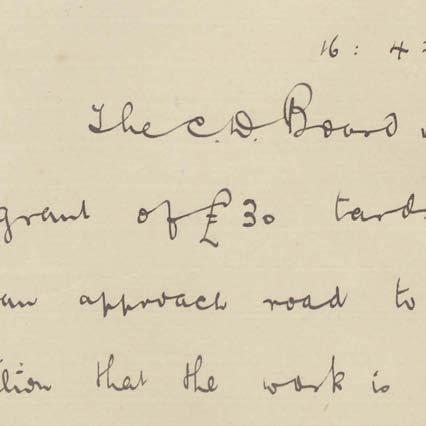 16 : 4 :
The C. D. Board
grant of £30 tards
an approach road to
that the work is